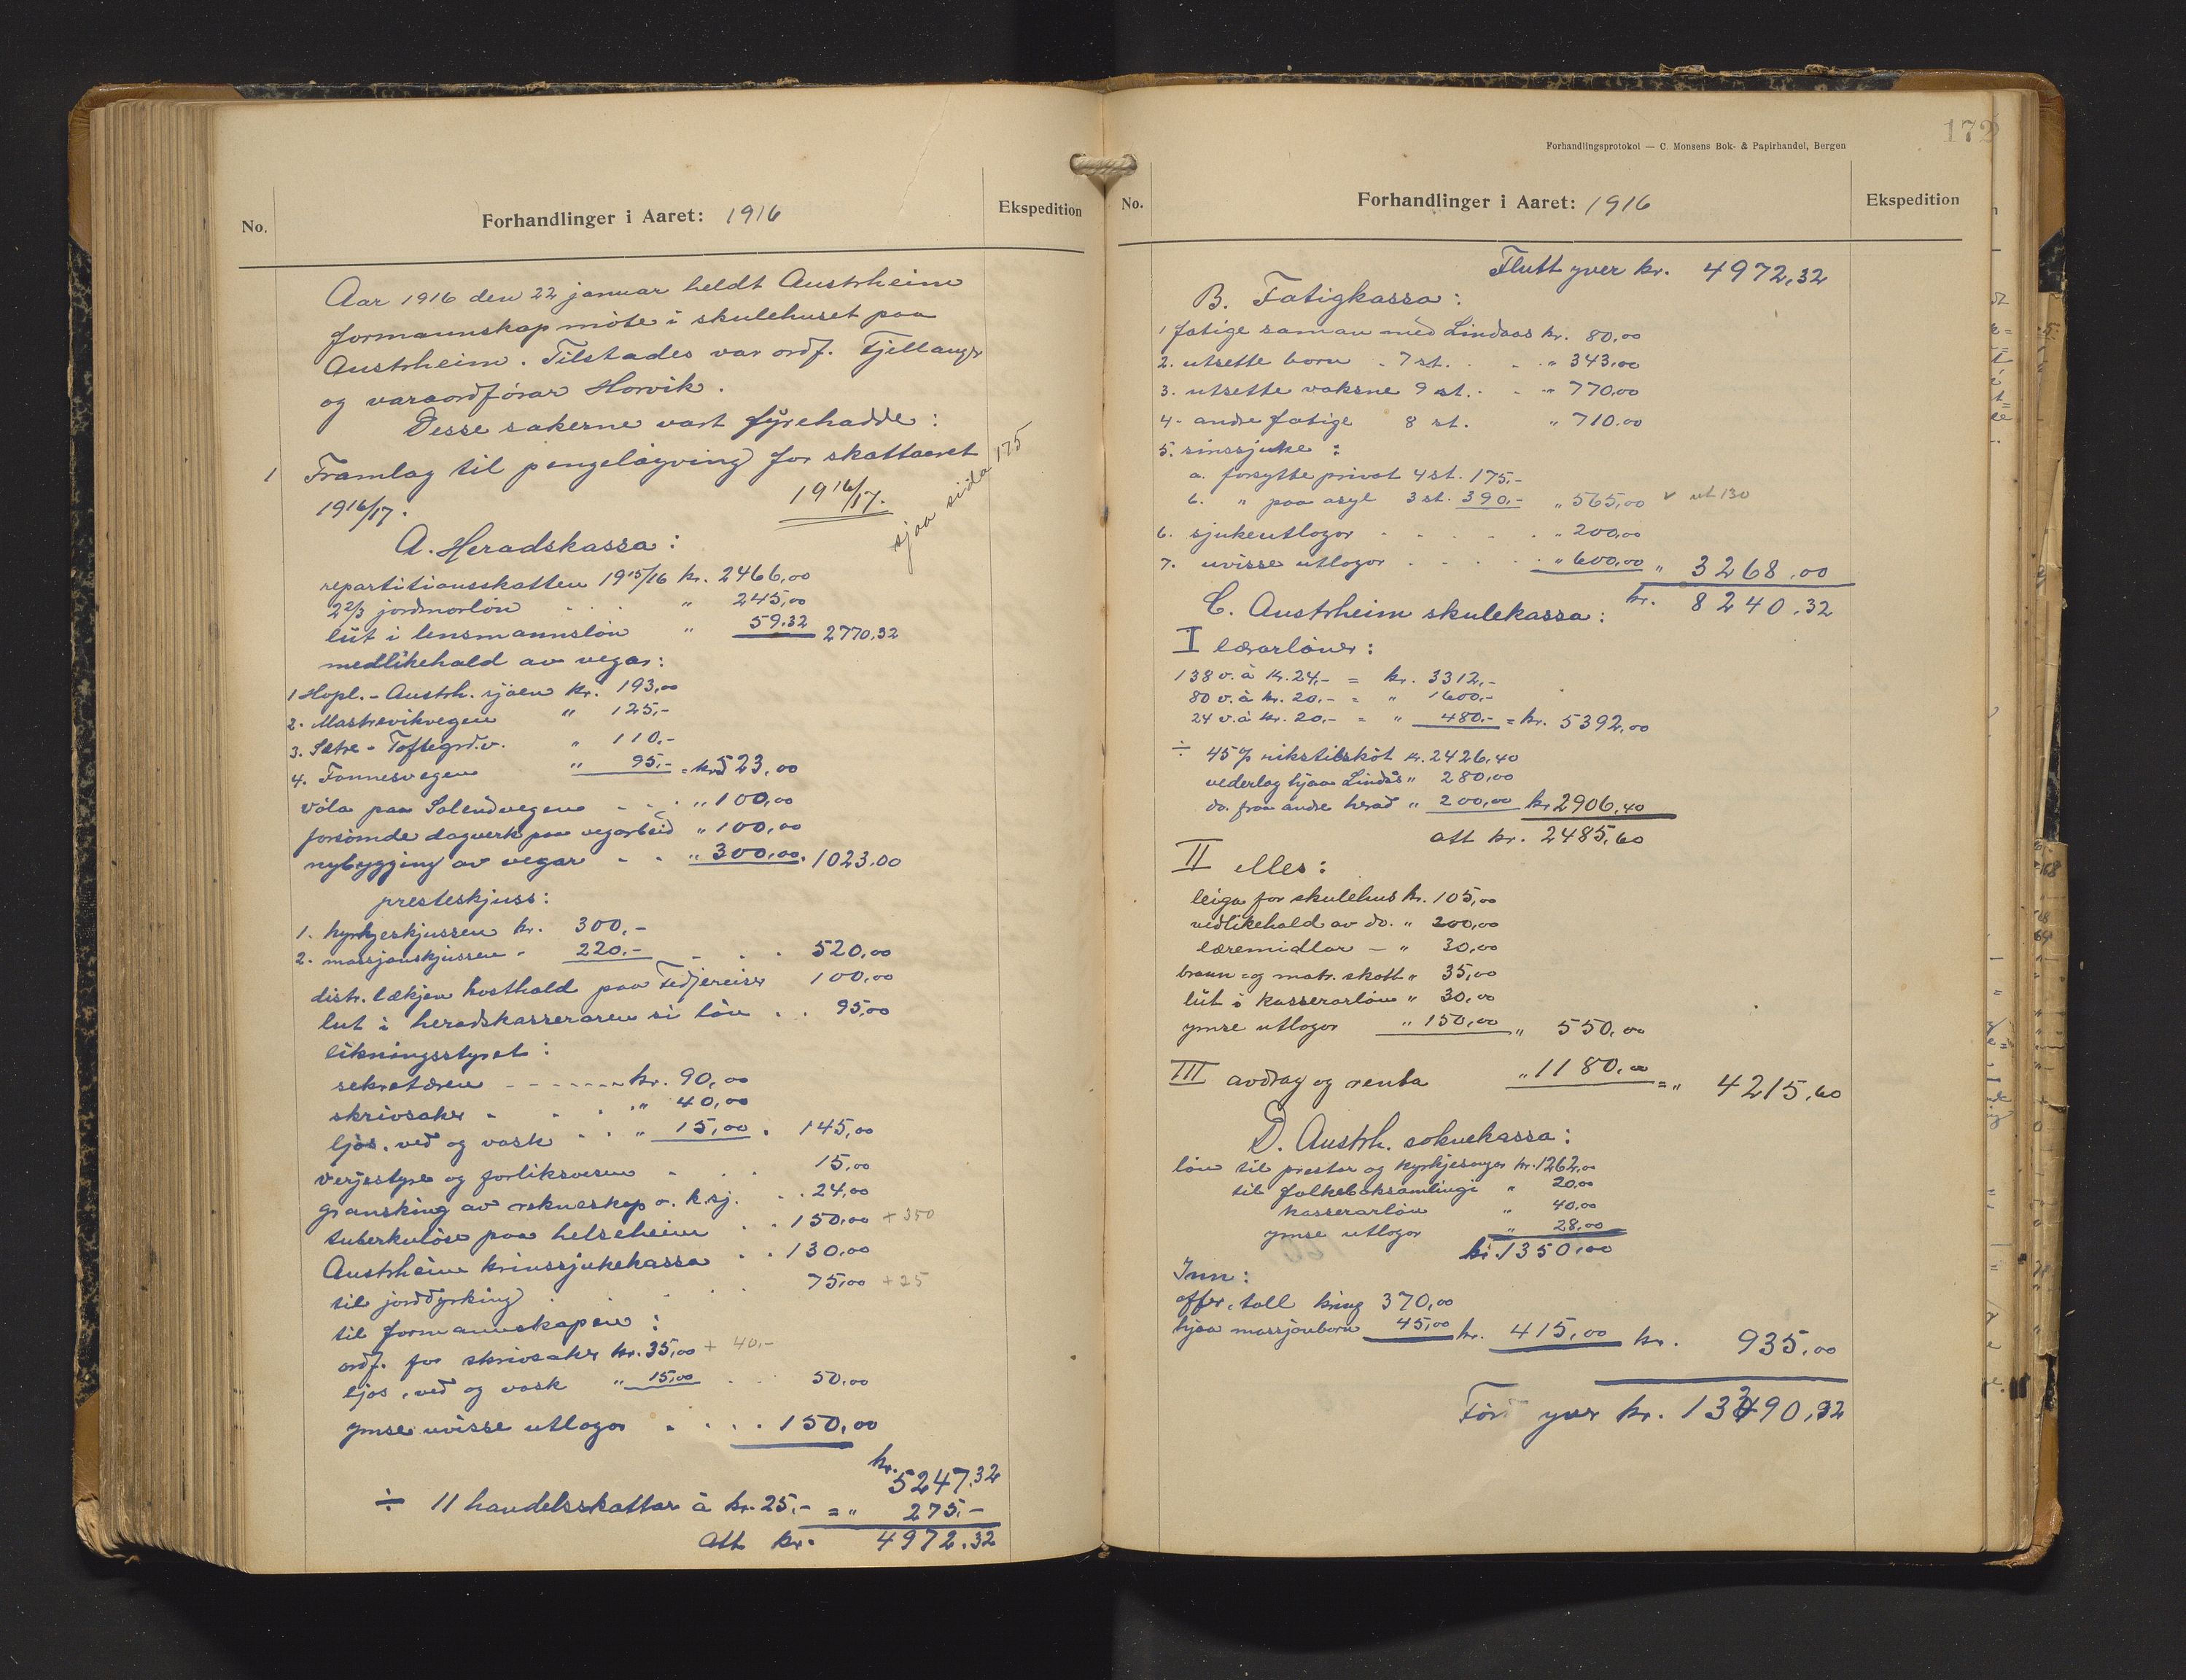 No.
Forhandlinger i Aaret: 1916
Ekspedition
Aar 1916 den 22 januar heldt Austrheim
formannskap møte i skulehuset paa
Austrheim. Tilstades var ordf. Fjellanger
og varaordførar Horvik.
Desse sakerne vart fyrehadde:
1 Framlag til pengeløyving for skattaaret
1916/17.
1916/17.
sjaa sida 175
A. Heradskassa:
repartitiansskatten 1915/16 kr. 2466,00
2 2/3 jordmorløn " 245,00
lut i lensmannsløn " 59.32 2770,32
medlikehald av vegar:
1 Hopl. - Austrh. sjøen kr. 193,00
2. Mastrevikvegen " 125,-
3. Sætre - Toftegrd.v. " 110.-
4. Fonnesvegen " 95,- = kr. 523,00
vøla paa Solendvegen - - " 100,00
forsømde dagverk paa vegarbeid " 100,00
nybygging av vegar - - " 300,00. 1023.00
presteskjuss:
1. kyrkjeskjussen kr. 300.-
2. massjonskjussen - 220.- - - . 520,00
distr. lækjen kosthald paa Fedjereiser 100,00
lut i heradskasseraren si løn . . 95,00
likningsstyret:
sekretæren - - - - - - kr. 90,00
skrivsaker - - . . " 40,00
ljos, ved og vask . . " 15,00 . 145,00
verjestyre og forliksvesen - . . 15,00
gransking av rekneskap o. k. sj. . . 24,00
tuberkuløse paa helseheim . . 150,00 + 350
Austrheim krinssjukekassa . . 130,00
til jorddyrking . . . 75,00 + 25
til formannskapen:
ordf. for skrivsaker kr. 35,00 + 40.-
ljos, ved og vask " 15,00 . . 50,00
ymse uvisse utlogor . . . . 150,00
kr. 5247.32
÷ 11 handelsskattar à kr. 25.- = " 275.-
Att kr. 4972.32
172
Forhandlingsprotokol — C. Monsens Bok- & Papirhandel, Bergen
No.
Forhandlinger i Aaret: 1916
Ekspedition
Flutt yver kr. 4972,32
B. Fatigkassa:
1 fatige saman med Lindaas kr. 80,00
2. utsette born . 7 st. . . . " 343,00
3. utsette vaksne 9 st. . . " 770,00
4- andre fatige 8 st. " 710.00
5. sinssjuke:
a. forsytte privat 4 st. 175,-
b. " paa asyl 3 st. 390,- " 565,00 v ut 130
6. sjukeutlogor - - . . . . " 200,00
7. uvisse utlogor . . . . . " 600,00 " 3268,00
kr. 8240.32
C. Austrheim skulekassa:
I lærarløner:
138 v. à kr. 24,- = kr. 3312,-
80 v. à kr. 20,- = " 1600,-
24 v. à kr. 20,- = " 480.- = kr. 5392,00
÷ 45 % rikstilskôt kr. 2426,40
vederlag hjaa Lindås " 280,00
do. fraa andre herad " 200,00 kr 2906,40
att kr. 2485,60
II elles:
leiga for skulehus kr. 105,00
vedlikehald av do. " 200,00
læremidlar - " 30,00
brann- og matr. skatt " 35,00
lut i kasserarløn " 30,00
ymse utlogor " 150,00 " 550,00
III avdrag og renta " 1180,00 = " 4215,60
D. Austrh. soknekassa:
løn til prestar og kyrkjesongar kr. 1262,00
til folkeboksamlingi " 20,00
kasserarløn " 40,00
ymse utlogor " 28,00
kr. 1350,00
Inn:
offer, toll kring 370,00
hjaa massjonborn 45,00 kr. 415,00 kr. 935,00
Før yver kr. 13390,92